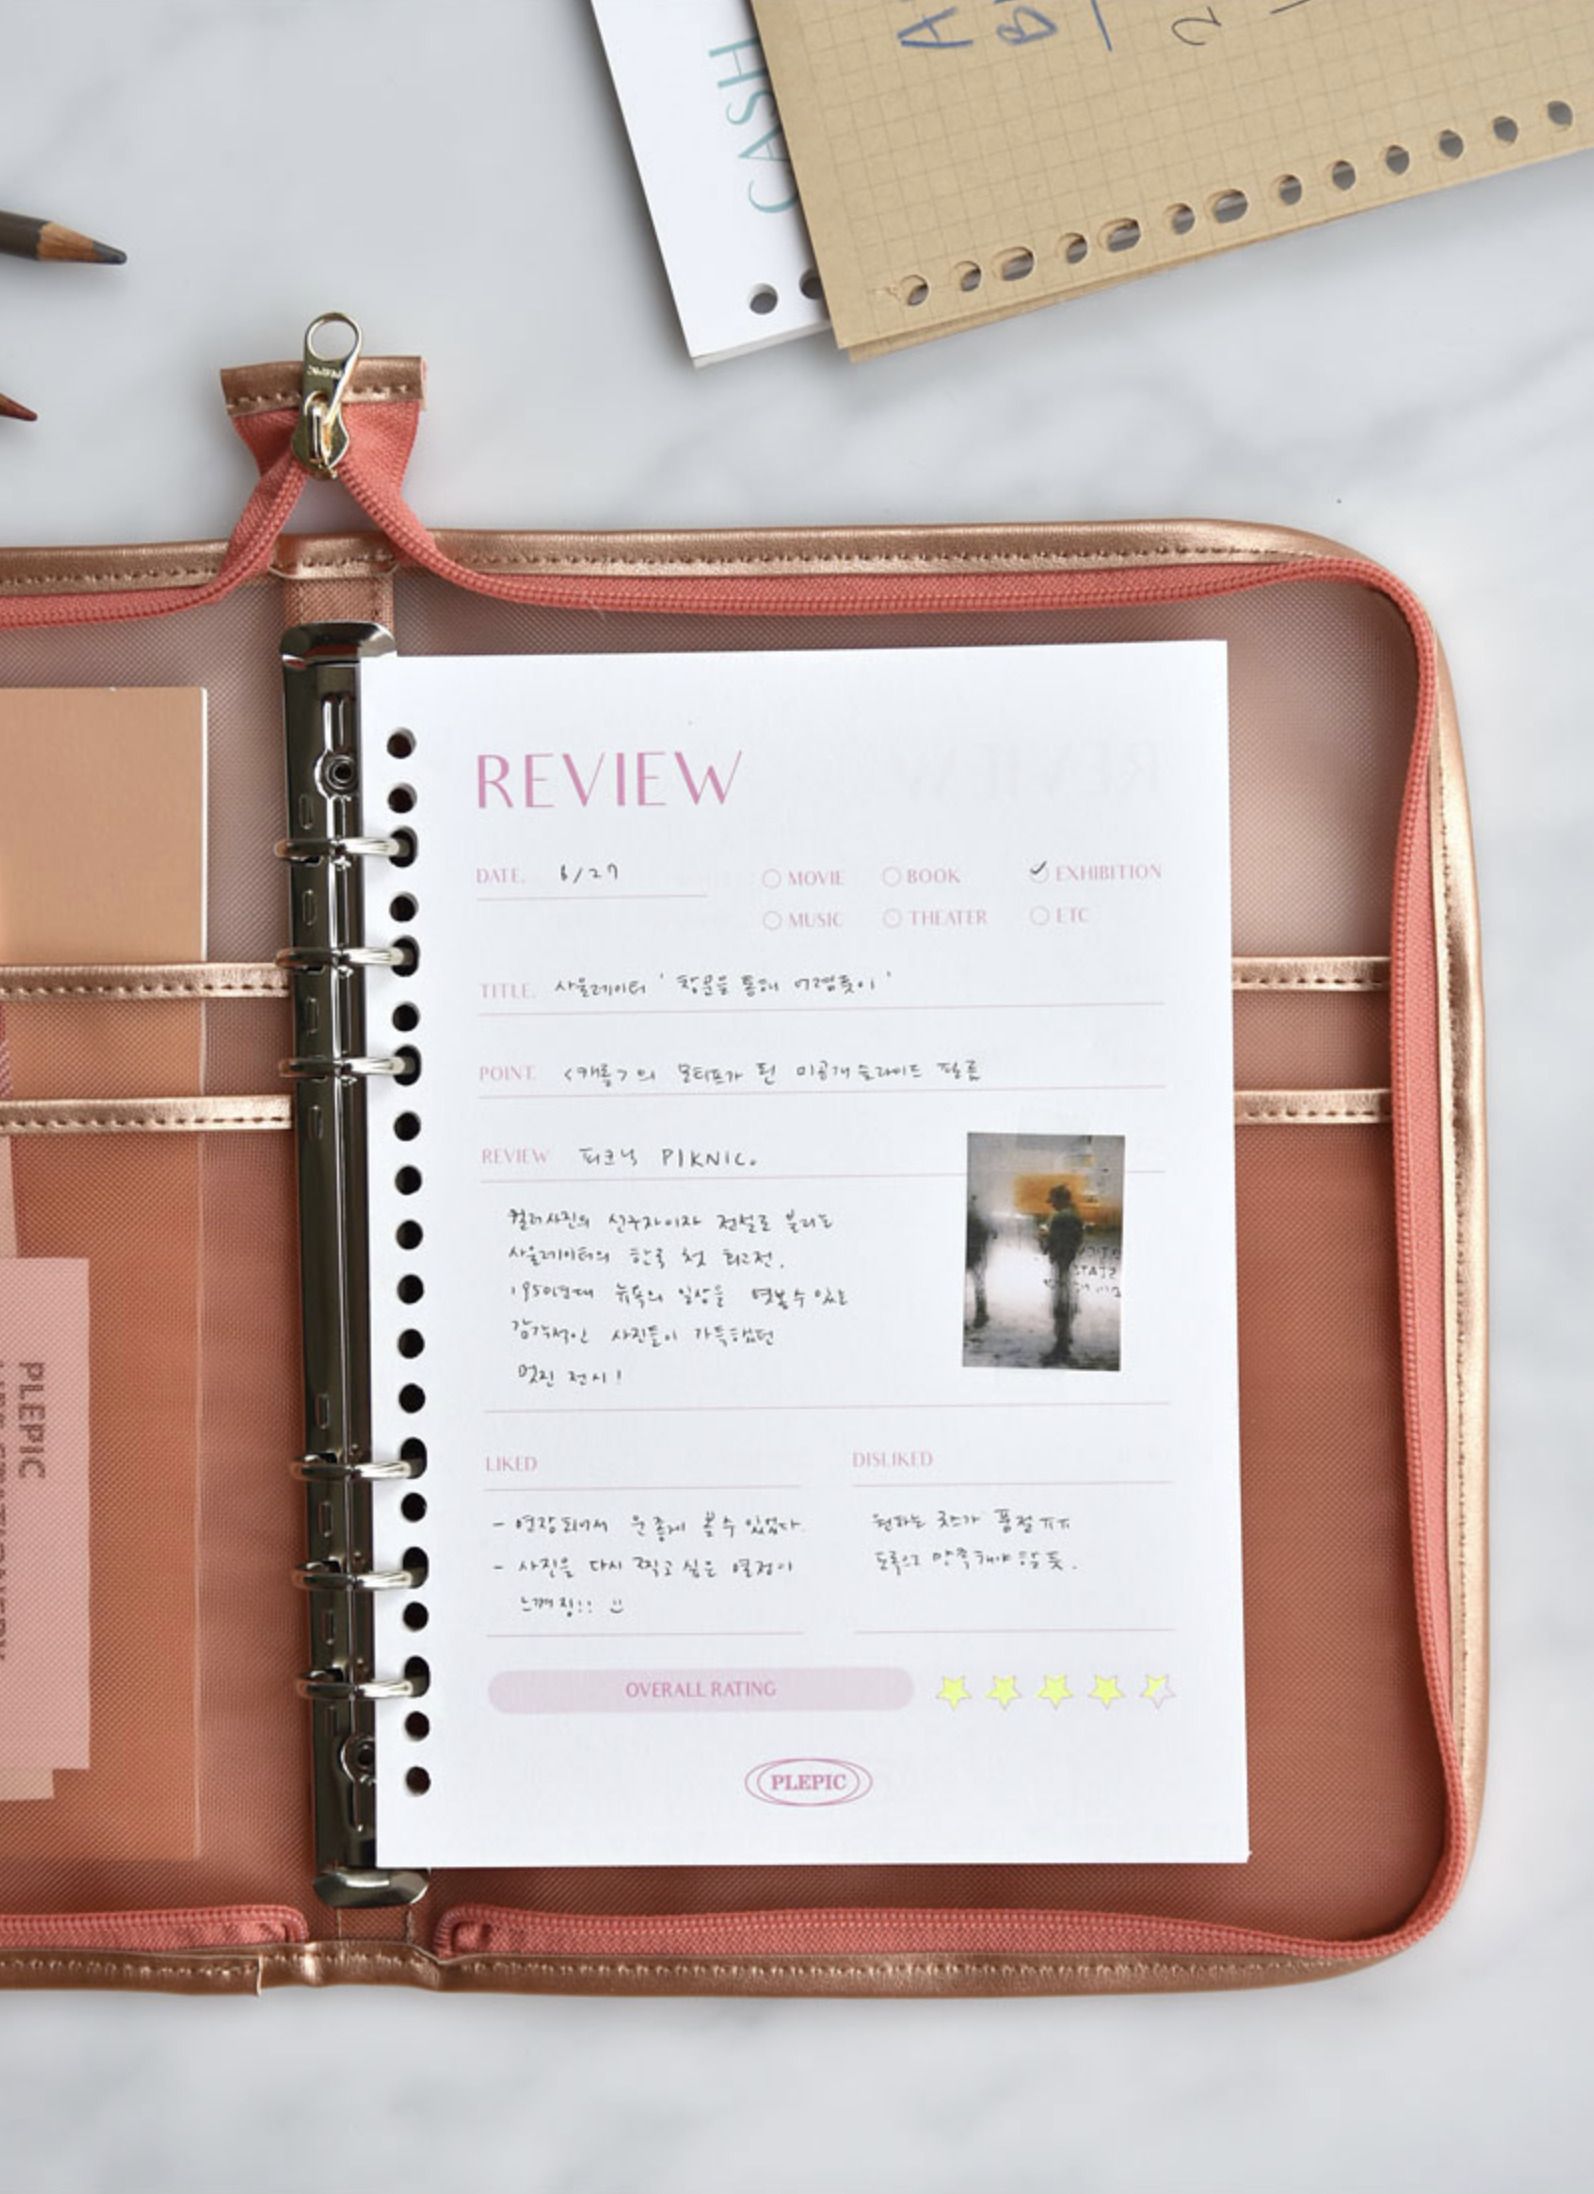 CASH
A
B
2
REVIEW
DATE. 6/27
MOVIE BOOK EXHIBITION
MUSIC THEATER ETC
TITLE. 사울레이터 '창문을 통해 어렴풋이'
POINT. <캐롤>의 모티프가 된 미공개 슬라이드 필름
REVIEW 피크닉 PIKNIC.
컬러사진의 선구자이자 전설로 불리는
사울레이터의 한국 첫 회고전.
1950년대 뉴욕의 일상을 엿볼 수 있는
감각적인 사진들이 가득했던
멋진 전시!
LIKED
- 연장되어서 운좋게 볼 수 있었다.
- 사진을 다시 찍고 싶은 열정이
느껴짐!!
DISLIKED
원하는 굿즈가 품절 ㅠㅠ
도록으로 만족해야 할 듯.
OVERALL RATING
PLEPIC
PLEPIC